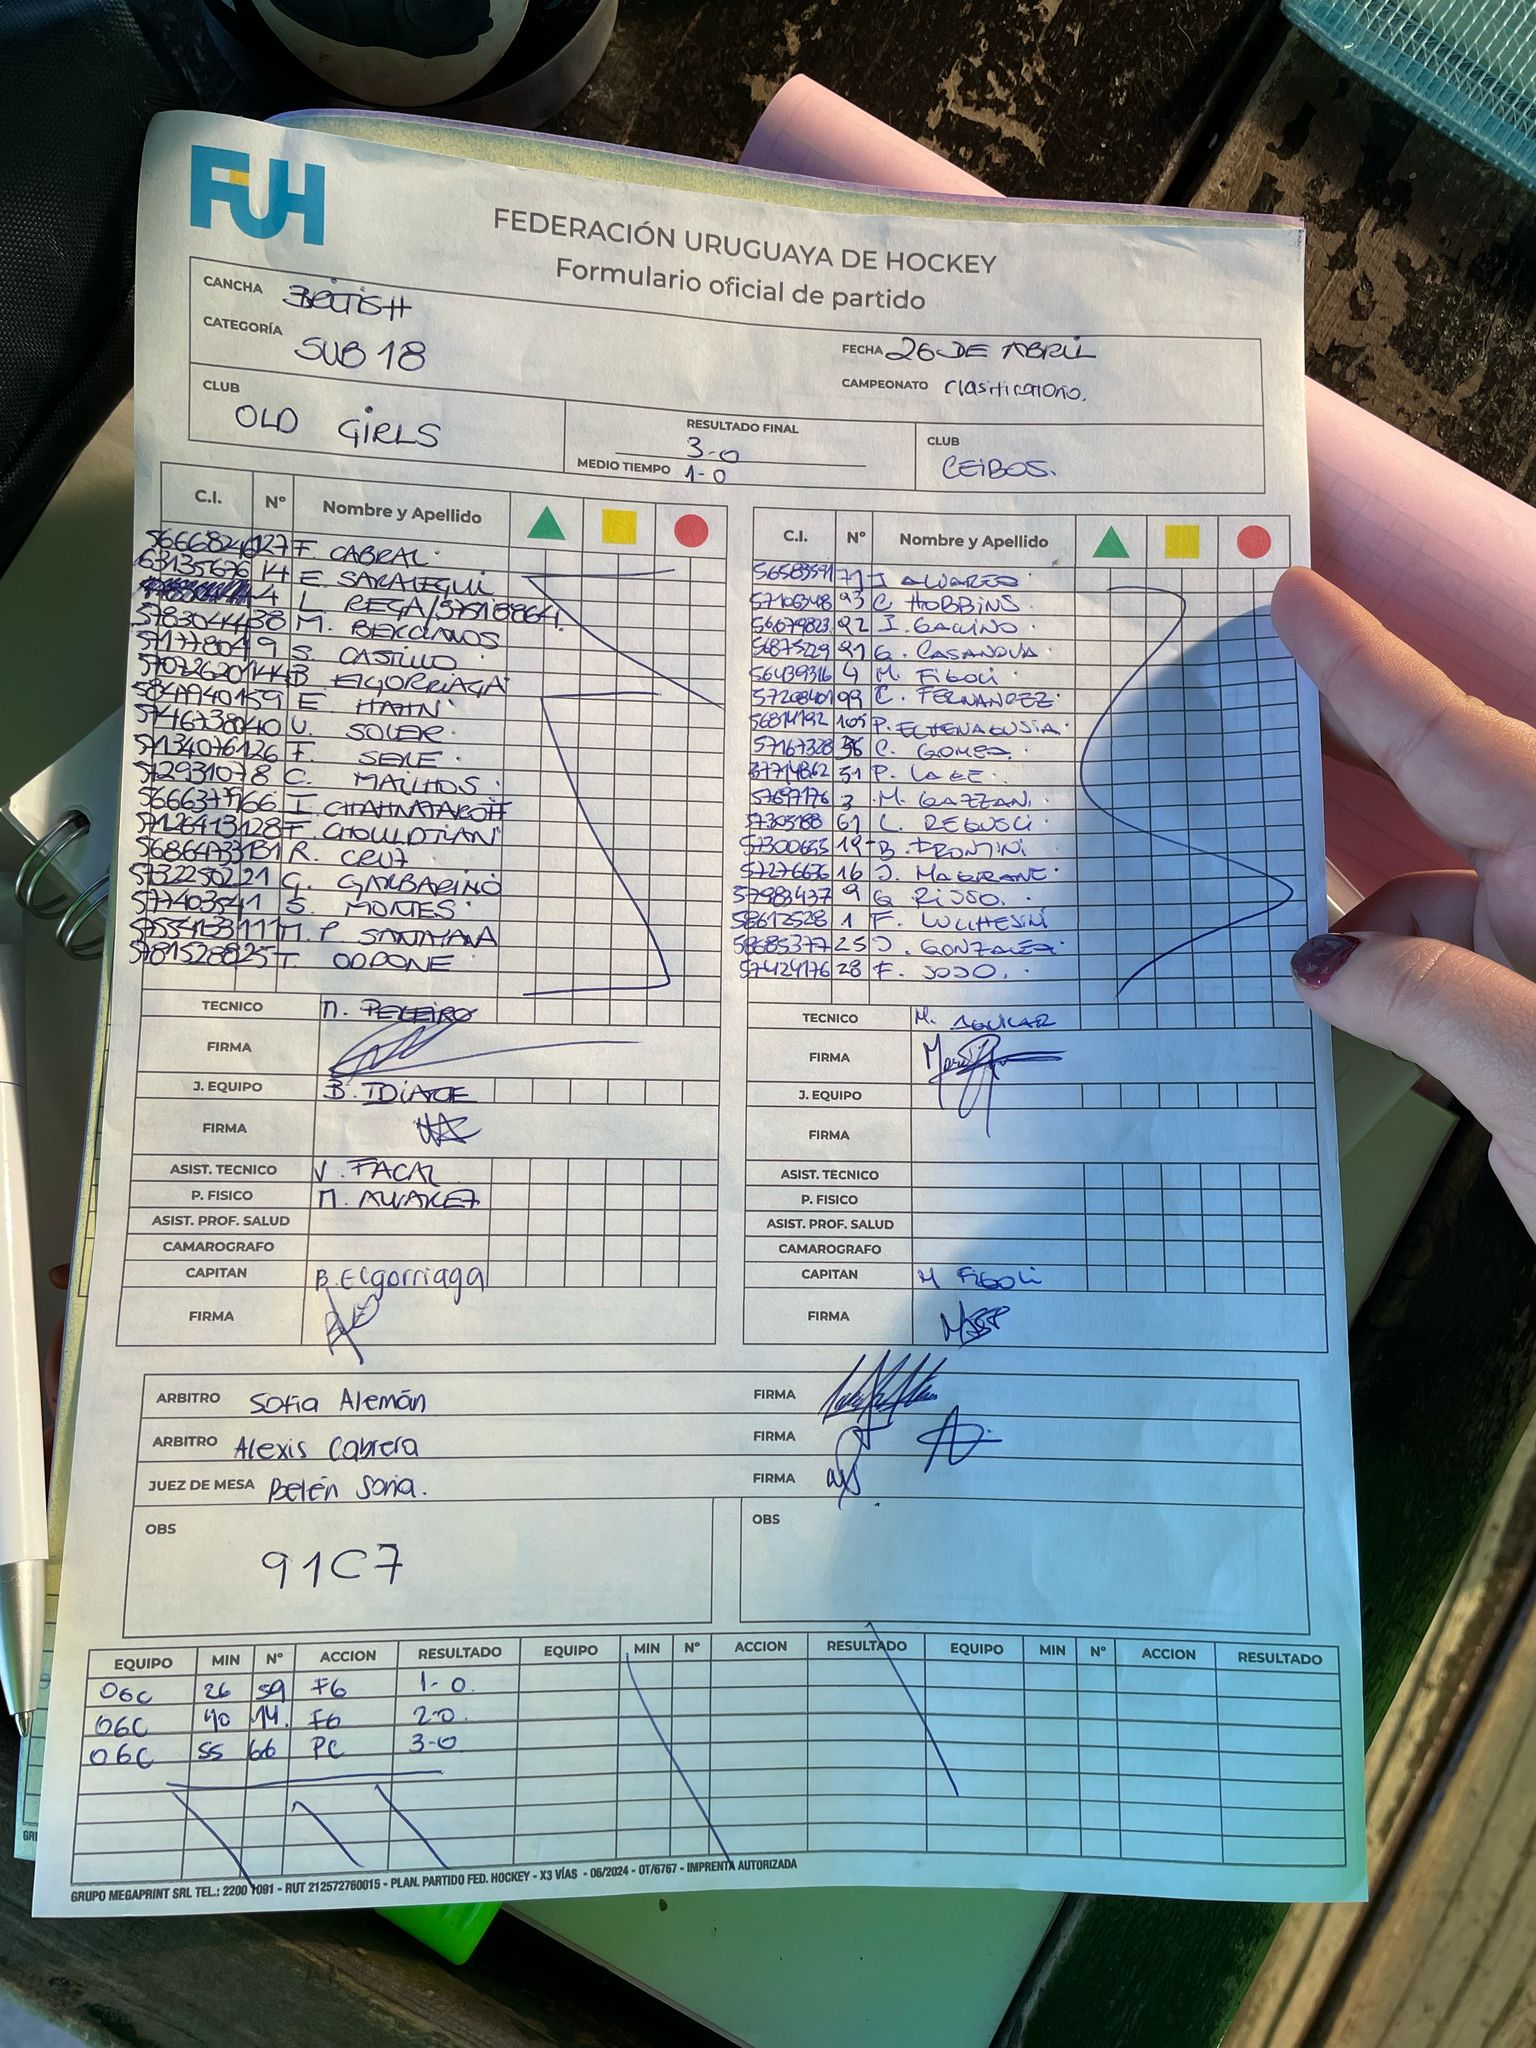 FUH
FEDERACIÓN URUGUAYA DE HOCKEY
Formulario oficial de partido
CANCHA BRITISH
CATEGORÍA SUB 18
FECHA 26 DE ABRIL
CAMPEONATO Clasificatorio.
CLUB OLD GIRLS
RESULTADO FINAL 3-0
MEDIO TIEMPO 1-0
CLUB CEIBOS.
C.I. Nº Nombre y Apellido
F. CABRAL
63135676 14 E. SARALEGUI
4 L. REGA/57518864
38 M.
9 S. CASTILLO
144 B ELGORRIAGA
59 E. HAHN
40 U. SOLER
126 F. SERE
8 C. MAILHOS
66 I.
128 T.
131 R. CRUZ
21 G. GARBARINO
41 S. MONTES
111 M. P SANTAYANA
25 T. ODDONE
C.I. Nº Nombre y Apellido
56583591 71 J ALVAREZ
57106348 93 C HOBBINS
56079823 22 I. GALLINO
56875229 21 G. CASANOVA
56439316 4 M. FIGOLI
57208401 99 C. FERNANDEZ
56814192 105 P.
57167328 36 C. GOMEZ
37714862 51 P. LAGE
57697176 3 M. GAZZANI
57305188 61 L. REGUSCI
57300655 19 B FRONTINI
57276636 16 J. MAGRANE
57983437 9 G RISSO
58612528 1 F. LUCHESINI
58685377 25 J. GONZALEZ
57424176 28 F. SOSO.
TECNICO M. PELEIRO
FIRMA
J. EQUIPO B. IDIARTE
FIRMA
ASIST. TECNICO V. FACAL
P. FISICO M. ALVAREZ
ASIST. PROF. SALUD
CAMAROGRAFO
CAPITAN B. Elgorriaga
FIRMA
TECNICO M. AGUILAR
FIRMA
J. EQUIPO
FIRMA
ASIST. TECNICO
P. FISICO
ASIST. PROF. SALUD
CAMAROGRAFO
CAPITAN M FIGOLI
FIRMA
ARBITRO Sofia Alemán FIRMA
ARBITRO Alexis Cabrera FIRMA
JUEZ DE MESA Belén Soria. FIRMA
OBS 91C7
OBS
EQUIPO MIN Nº ACCION RESULTADO EQUIPO MIN Nº ACCION RESULTADO EQUIPO MIN Nº ACCION RESULTADO
OGC 26 59 FG 1-0
OGC 40 14. FG 2-0
OGC 55 66 PC 3-0
GRUPO MEGAPRINT SRL TEL.: 2200 1091 - RUT 212572760015 - PLAN. PARTIDO FED. HOCKEY - X3 VÍAS - 06/2024 - OT/6767 - IMPRENTA AUTORIZADA